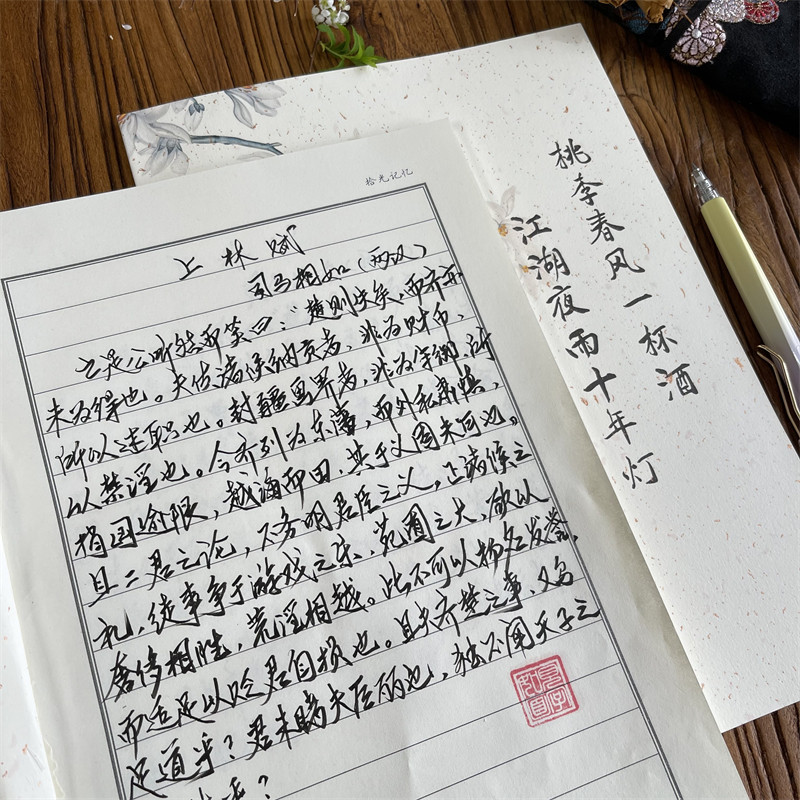 拾光记忆
上林赋
司马相如（两汉）
亡是公听然而笑曰：“楚则失矣，而齐亦
未为得也。夫使诸侯纳贡者，非为财币，
所以述职也。封疆画界者，非为守御，所
以禁淫也。今齐列为东藩，而外私肃慎，
捐国逾限，越海而田，其于义固未可也。
且二君之论，不务明君臣之义，正诸侯之
礼，徒事争于游戏之乐，苑囿之大，欲以
奢侈相胜，荒淫相越。此不可以扬名发誉，
而适足以贬君自损也。且夫齐楚之事，又乌
足道乎？君未睹夫巨丽也，独不闻天子之
乎？
桃李春风一杯酒
江湖夜雨十年灯